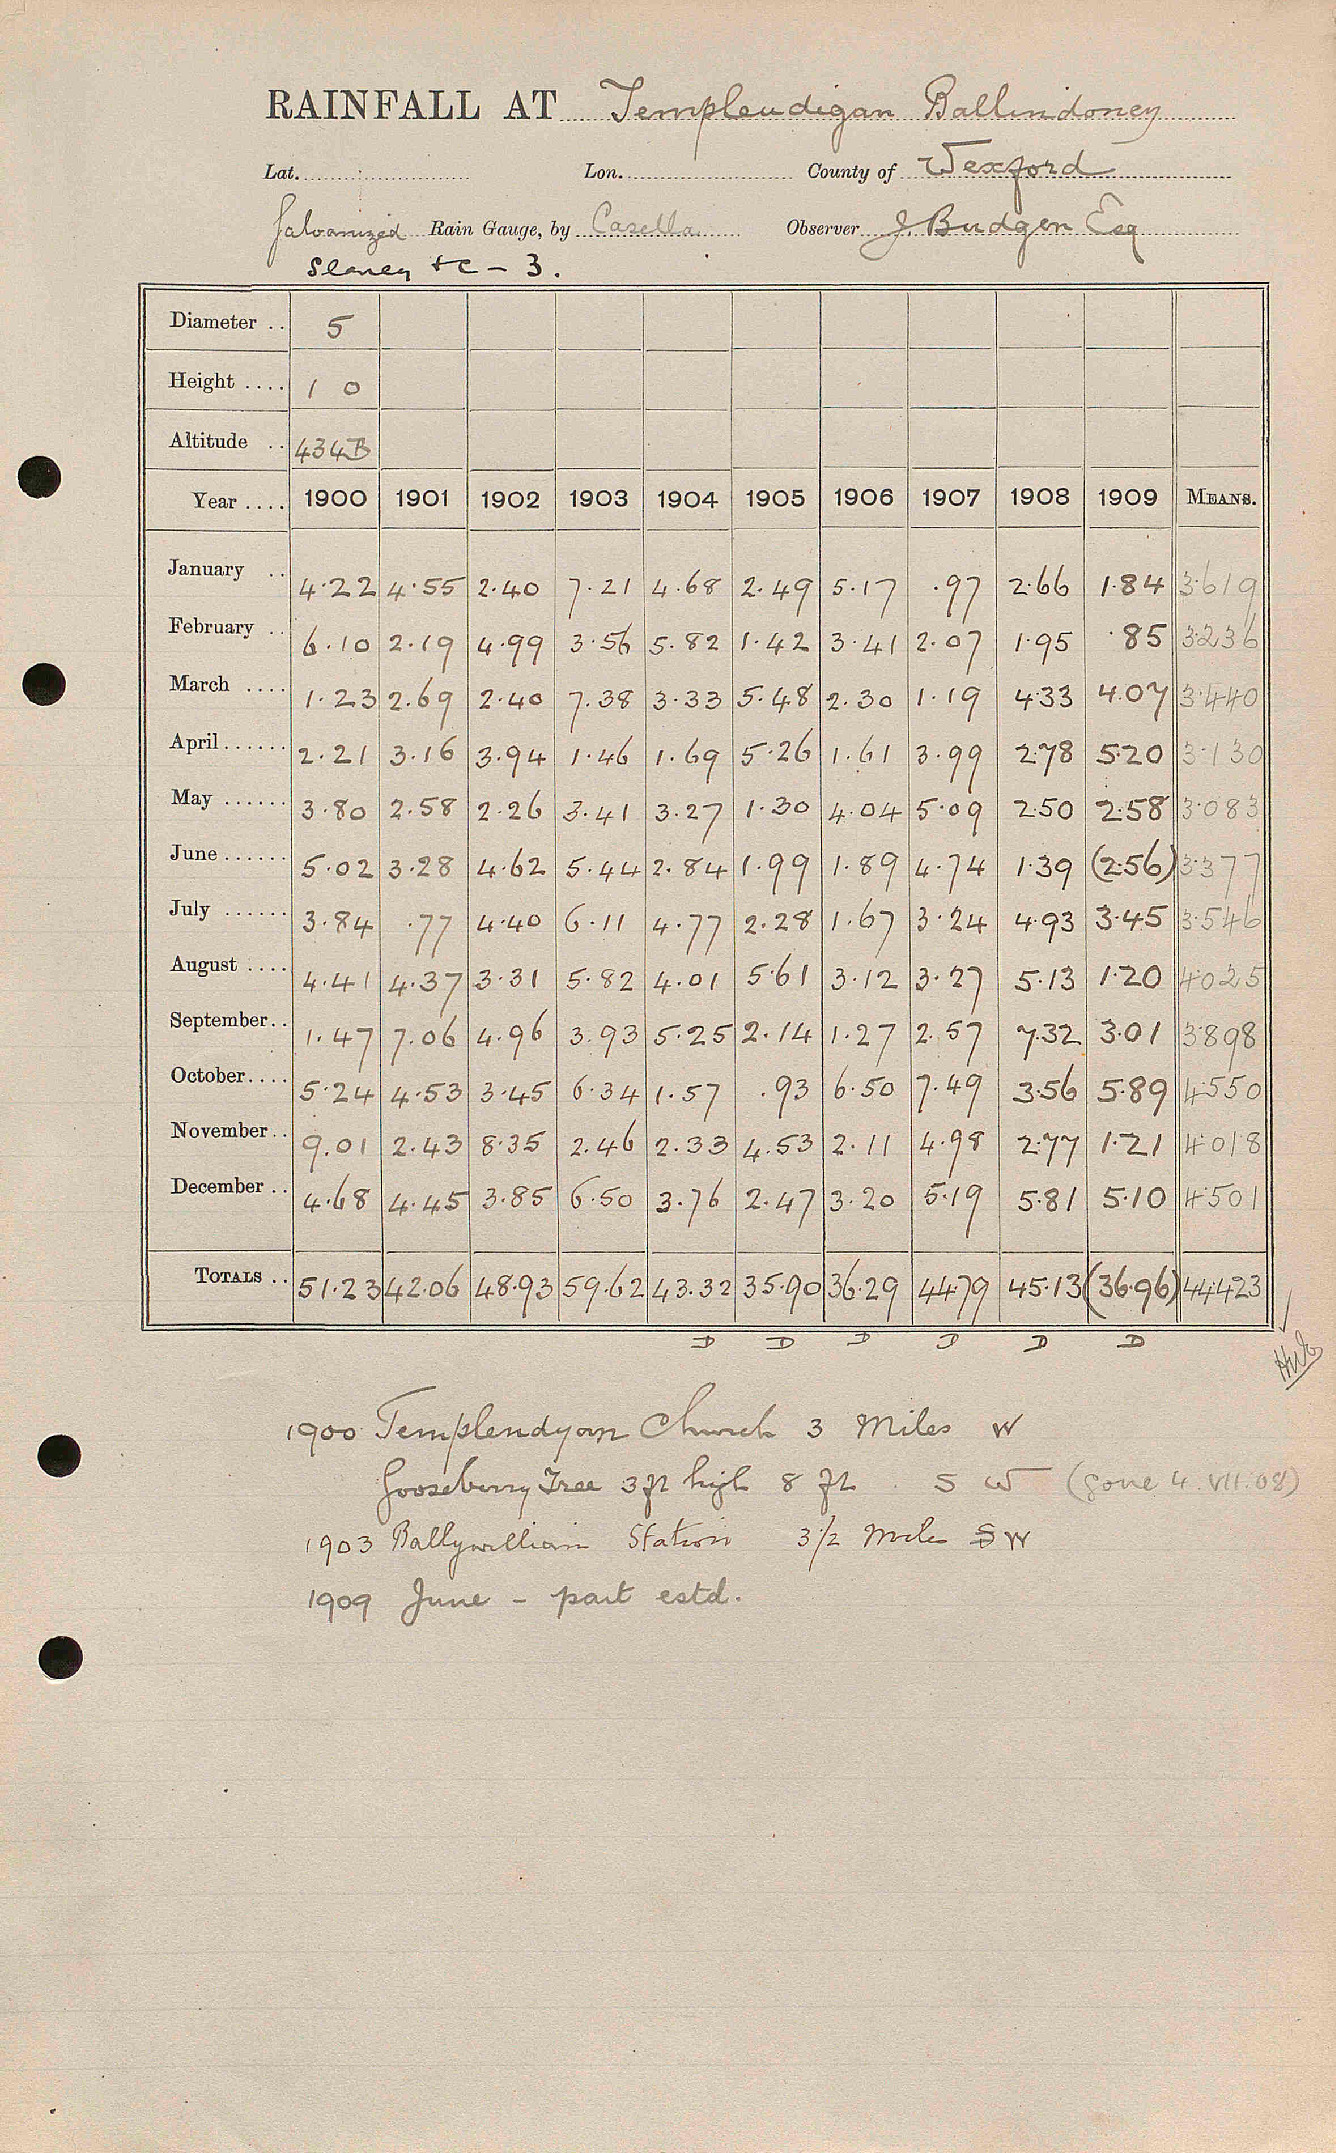 RAINFALL AT Templeudigan Ballindoney
Lat. Lon. County of Wexford
Galvanized Rain Gauge, by Casella Observer J. Budgen Esq
Slaney &c - 3.
Diameter .. 5
Height .... 1 0
Altitude .. 434B
Year .... 1900 1901 1902 1903 1904 1905 1906 1907 1908 1909 MEANS.
January .. 4.22 4.55 2.40 7.21 4.68 2.49 5.17 .97 2.66 1.84 3.619
February .. 6.10 2.19 4.99 3.56 5.82 1.42 3.41 2.07 1.95 .85 3.236
March .... 1.23 2.69 2.40 7.38 3.33 5.48 2.30 1.19 4.33 4.07 3.440
April ...... 2.21 3.16 3.94 1.46 1.69 5.26 1.61 3.99 2.78 5.20 3.130
May ...... 3.80 2.58 2.26 3.41 3.27 1.30 4.04 5.09 2.50 2.58 3.083
June ...... 5.02 3.28 4.62 5.44 2.84 1.99 1.89 4.74 1.39 (2.56) 3.377
July ...... 3.84 .77 4.40 6.11 4.77 2.28 1.67 3.24 4.93 3.45 3.546
August .... 4.41 4.37 3.31 5.82 4.01 5.61 3.12 3.27 5.13 1.20 4.025
September .. 1.47 7.06 4.96 3.93 5.25 2.14 1.27 2.57 7.32 3.01 3.898
October .... 5.24 4.53 3.45 6.34 1.57 .93 6.50 7.49 3.56 5.89 4.550
November .. 9.01 2.43 8.35 2.46 2.33 4.53 2.11 4.98 2.77 1.21 4.018
December .. 4.68 4.45 3.85 6.50 3.76 2.47 3.20 5.19 5.81 5.10 4.501
TOTALS .. 51.23 42.06 48.93 59.62 43.32 35.90 36.29 44.79 45.13 (36.96) 44.423
D D D D D D
1900 Templendyan Church 3 Miles W
Gooseberry Tree 3ft high 8 ft S W (gone 4.VII.08)
1903 Ballywilliam Station 3 1/2 Miles SW
1909 June - part estd.